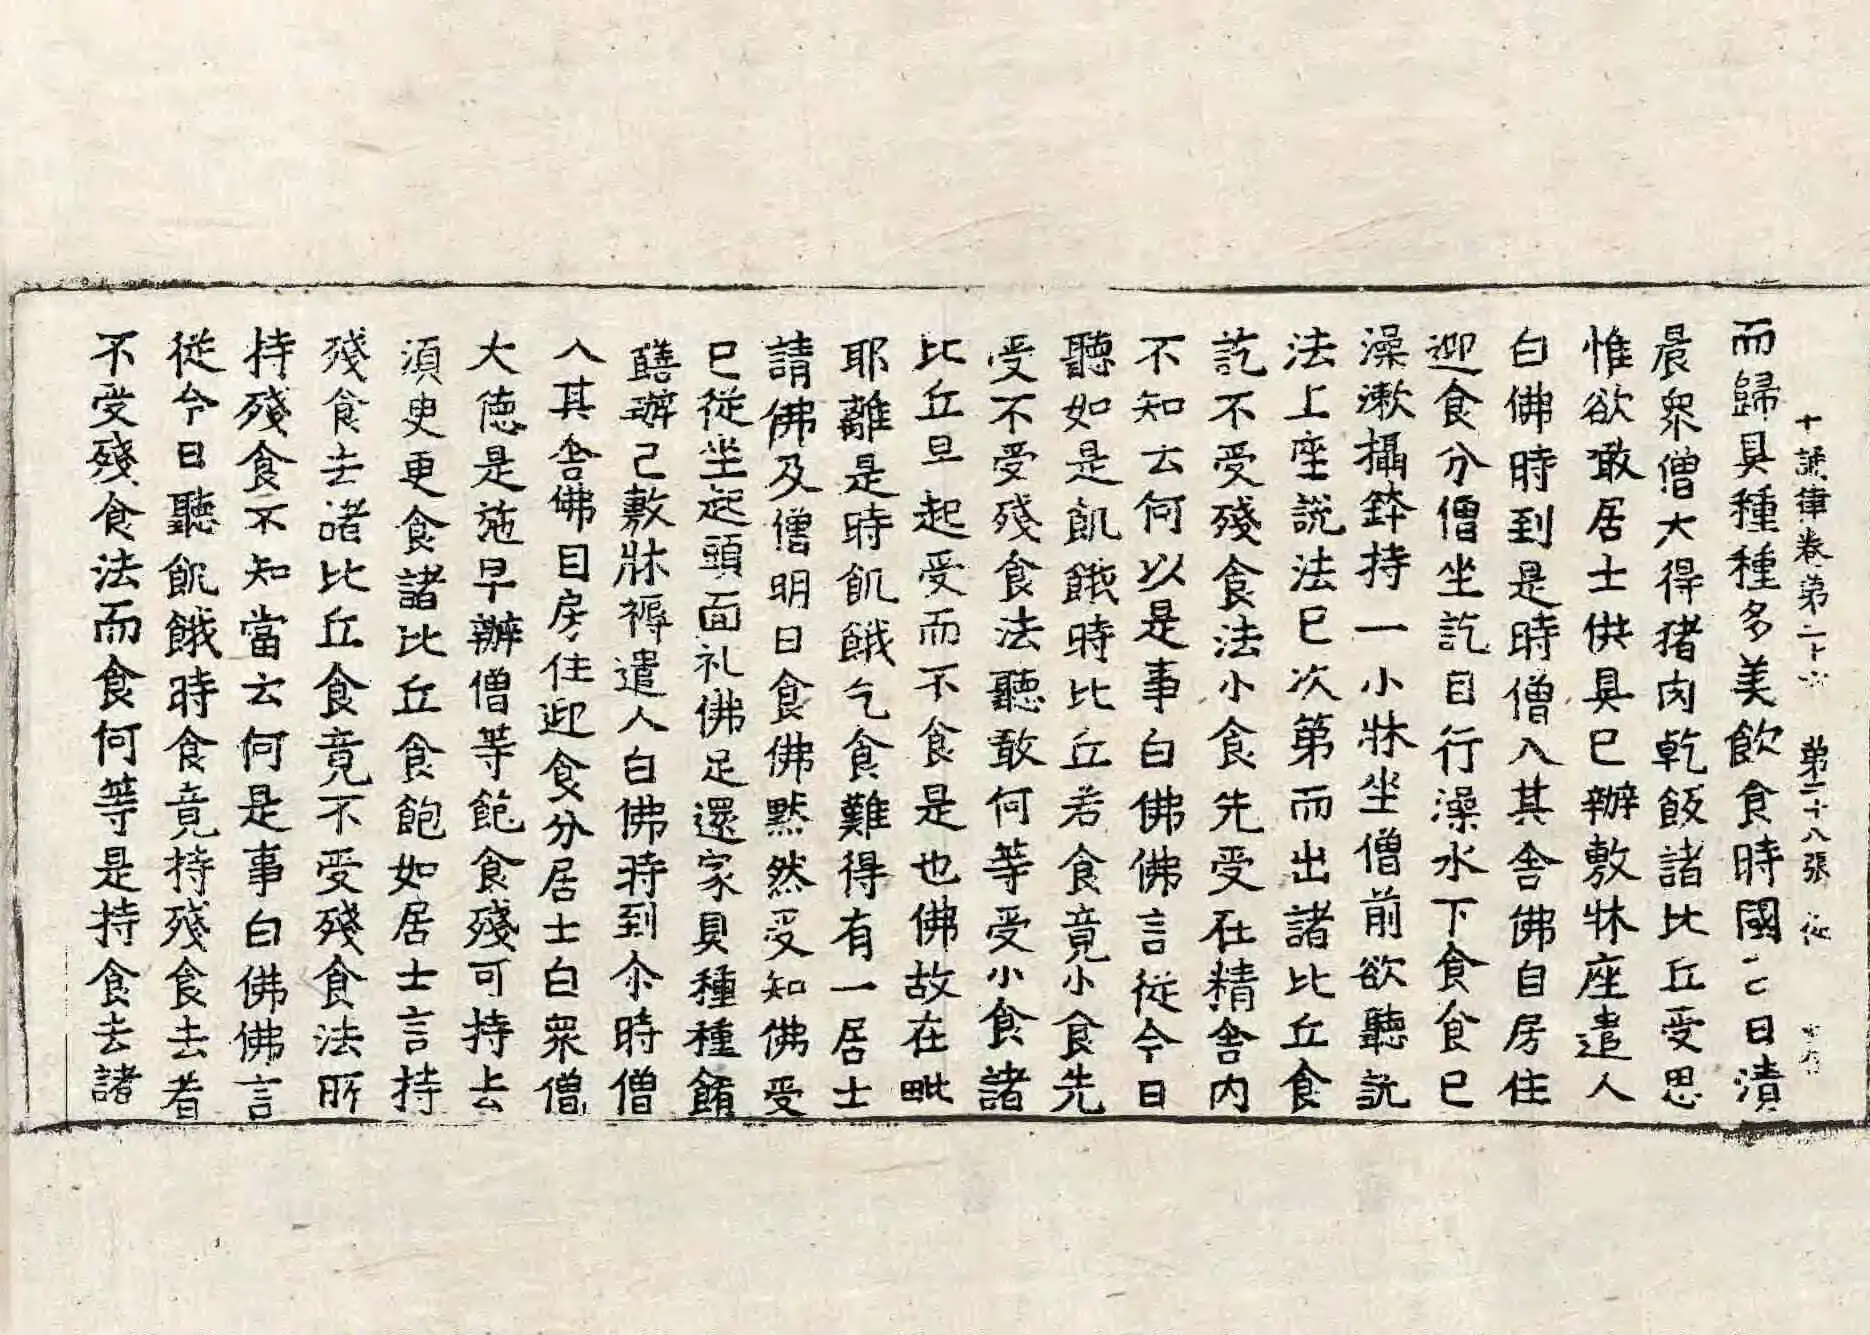 十誦律卷第二十六 第二十八張 從
而歸具種種多美飲食時國亡日漬
晨眾僧大得猪肉乾飯諸比丘受思
惟欲噉居士供具已辦敷牀座遣人
白佛時到是時僧入其舍佛自房住
迎食分僧坐訖自行澡水下食食已
澡漱攝鉢持一小牀坐僧前欲聽說
法上座說法已次第而出諸比丘食
訖不受殘食法小食先受在精舍內
不知云何以是事白佛佛言從今日
聽如是飢餓時比丘若食竟小食先
受不受殘食法聽敢何等受小食諸
比丘旦起受而不食是也佛故在毗
耶離是時飢餓乞食難得有一居士
請佛及僧明日食佛黙然受知佛受
已從坐起頭面礼佛足還家具種種餚
饍辦已敷牀褥遣人白佛時到尒時僧
入其舍佛自房住迎食分居士白眾僧
大德是施早辦僧等飽食殘可持去
須臾更食諸比丘食飽如居士言持
殘食去諸比丘食竟不受殘食法所
持殘食不知當云何是事白佛佛言
從今日聽飢餓時食竟持殘食去者
不受殘食法而食何等是持食去諸